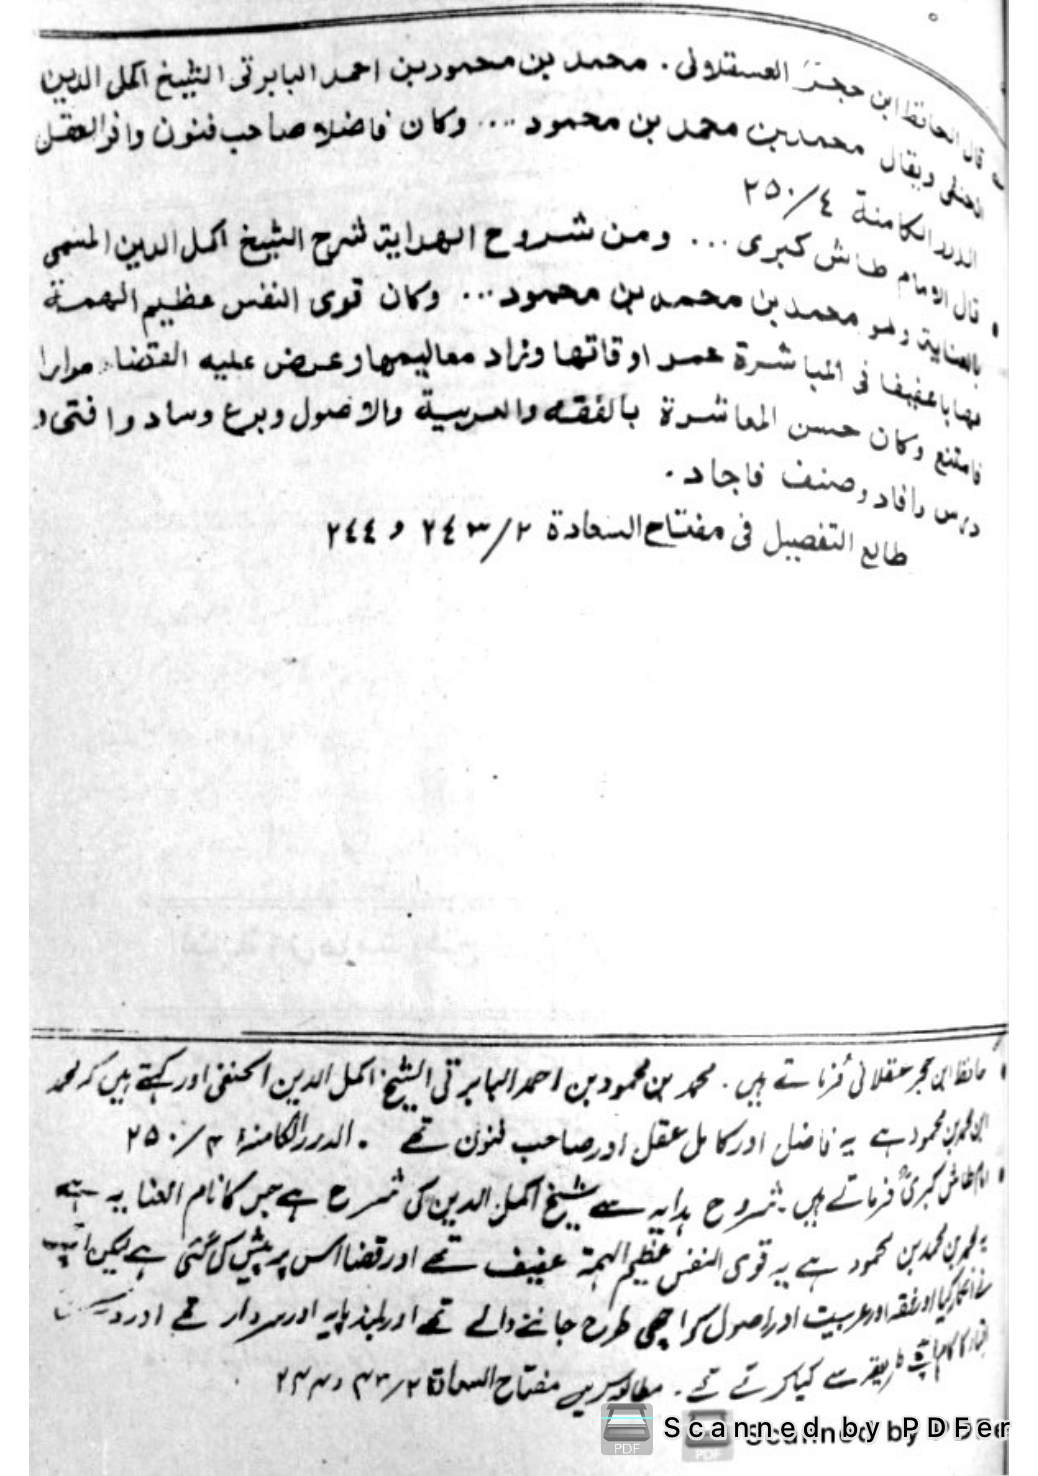 قال الحافظ ابن حجر العسقلانی . محمد بن محمود بن احمد البابرتی الشیخ اکمل الدین
الحنفی ویقال محمد بن محمد بن محمود ... وکان فاضلا صاحب فنون وافر العقل
الدرر الکامنة ٤/٢٥٠
قال الامام طاش کبری ... ومن شروح الهدایة شرح الشیخ اکمل الدین المسمی
بالعنایة وهو محمد بن محمد بن محمود ... وکان قوی النفس عظیم الهمة
مهابا عفیفا فی المباشرة عمر اوقاتها وزاد معالیمها وعرض علیه القضاء مرارا
فامتنع وکان حسن المعاشرة بالفقه والعربیة والاصول وبرع وساد وافتی و
درس وافاد وصنف فاجاد .
طالع التفصیل فی مفتاح السعادة ٢/٢٤٣ و ٢٤٤
حافظ ابن حجر عسقلانی فرماتے ہیں . محمد بن محمود بن احمد البابرتی الشیخ اکمل الدین الحنفی اور کہتے ہیں کہ محمد
ابن محمد بن محمود ہے یہ فاضل اور کامل عقل اور صاحب فنون تھے . الدرر الکامنۃ ۴/۲۵۰
امام طاش کبریؒ فرماتے ہیں . شروح ہدایہ سے شیخ اکمل الدین کی شرح ہے جس کا نام العنایہ ہے
یہ محمد بن محمد بن محمود ہے یہ قوی النفس عظیم الہمۃ عفیف تھے اور قضا اس پر پیش کی گئی ہے لیکن آپ
نے انکار کیا اور فقہ اور عربیت اور اصول کو اچھی طرح جاننے والے تھے اور بلند پایہ اور سردار تھے اور
افتاء کا کام اچھے طریقہ سے کیا کرتے تھے . مطالعہ کریں مفتاح السعادۃ ۲/۲۴۳ و ۲۴۴
Scanned by PDFer
Scanned by PDFe